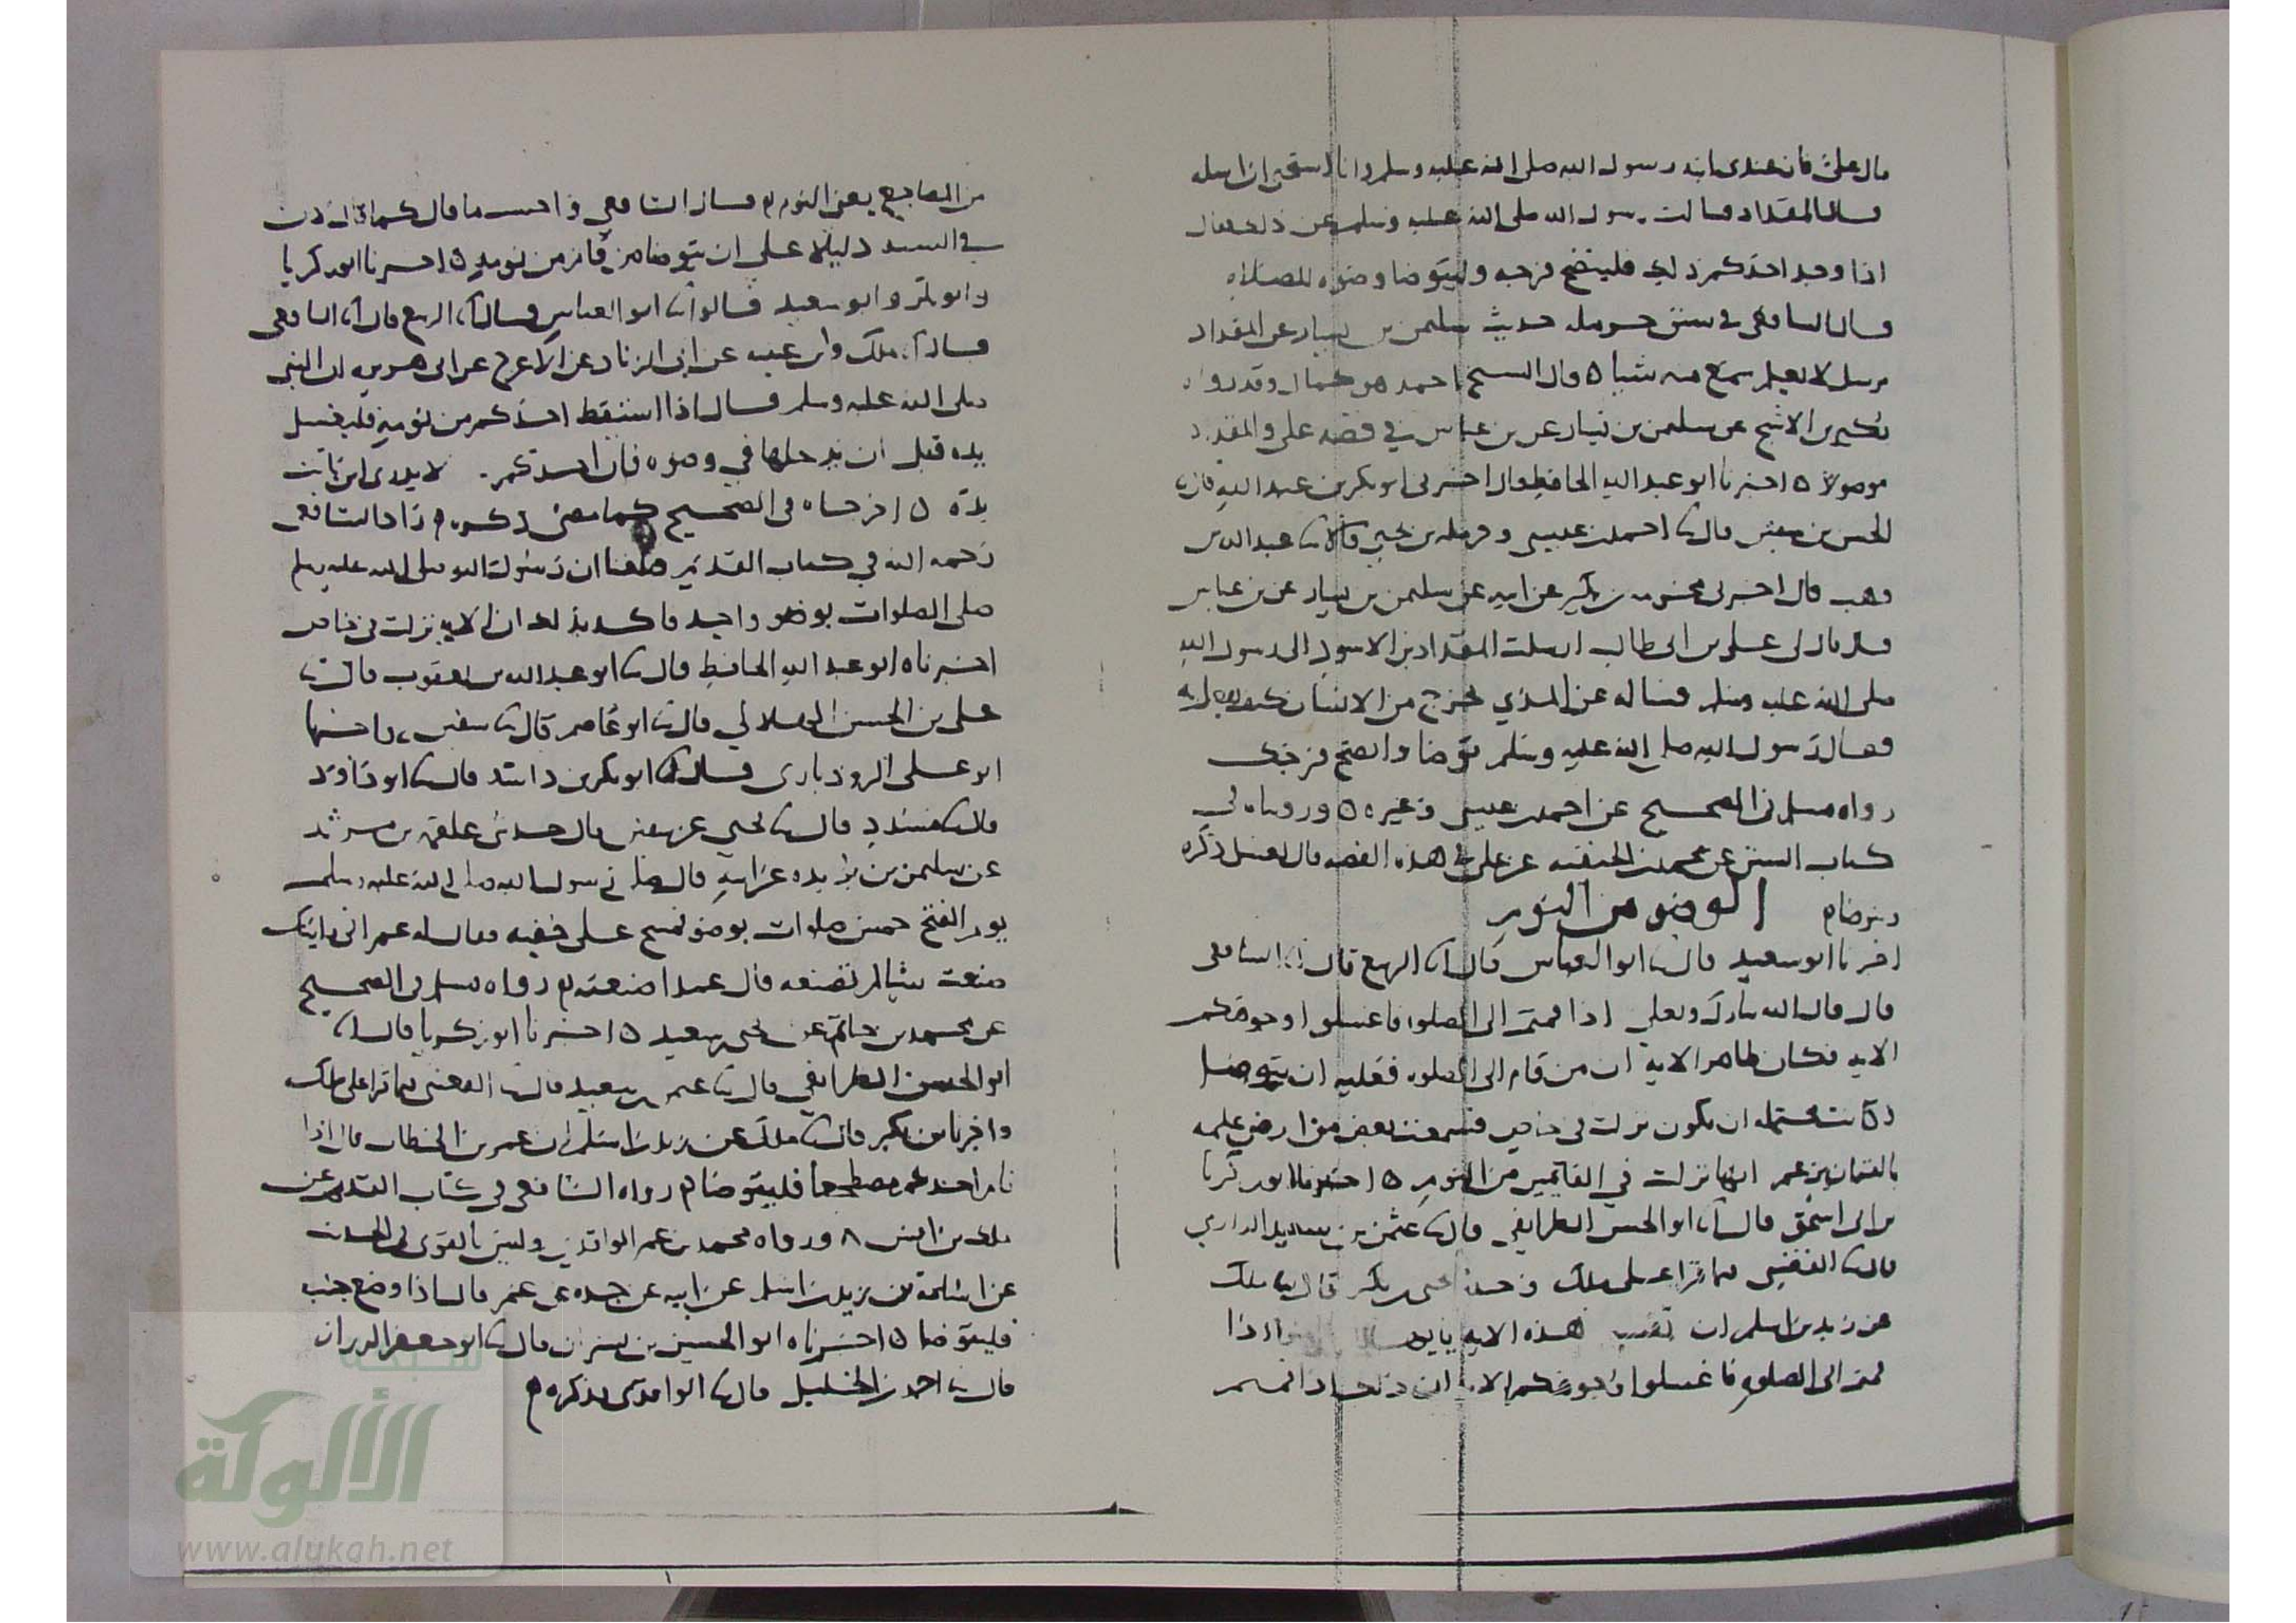 قال علي فان عندي ابنه رسول الله صلى الله عليه وسلم وانا استحي ان اسله
قال المقداد فسالت رسول الله صلى الله عليه وسلم عن ذلك فقال
اذا وجد احدكم ذلك فلينضح فرجه وليتوضا وضوه للصلاه
قال الشافعي في سنن حرمله حديث سليمن بن يسار عن المقداد
مرسل لا نعلم سمع منه شيا ٥ قال الشيخ احمد هو كما قال وقد رواه
بكير بن الاشج عن سليمن بن يسار عن بن عباس في قصه علي والمقداد
موصولا ٥ اخبرنا ابو عبد الله الحافظ قال اخبرني ابو بكر بن عبد الله قال ثنا
الحسن بن سفين قال ثنا احمد بن عيسى وحرمله بن يحيى قالا ثنا عبد الله بن
وهب قال اخبرني مخرمه بن بكير عن ابيه عن سليمن بن يسار عن بن عباس
قال قال لي علي بن ابي طالب ارسلت المقداد بن الاسود الى رسول الله
صلى الله عليه وسلم فساله عن المذي يخرج من الانسان كيف يفعل به
فقال رسول الله صلى الله عليه وسلم توضا وانضح فرجك
رواه مسلم في الصحيح عن احمد بن عيسى وغيره ٥ وروينا في
كتاب السنن عن محمد بن الحنفيه عن علي في هذه القصه قال يغسل ذكره
ويتوضا ٥ الوضو من النوم
اخبرنا ابو سعيد قال ثنا ابو العباس قال انا الربيع قال انا الشافعي
قال قال الله تبارك وتعلى اذا قمتم الى الصلوة فاغسلوا وجوهكم
الايه فكان ظاهر الاية ان من قام الى الصلوه فعليه ان يتوضا
وكانت محتمله ان يكون نزلت في خاص فسمعت بعض من ارضى علمه
بالقران يزعم انها نزلت في القايمين من النوم ٥ اخبرنا ابو زكريا
بن ابي اسحق قال انا ابو الحسن الطرايفي قال ثنا عثمن بن سعيد الدارمي
قال ثنا القعنبي فيما قرا على ملك وحدثنا يحيى بن بكير قال ثنا ملك
عن زيد بن اسلم ان تفسير هذه الايه يايها الذين امنوا اذا
قمتم الى الصلوه فاغسلوا وجوهكم الايه ان ذلك اذا قمتم
من المضاجع يعني النوم ٥ قال الشافعي واحسب ما قال كما قال لان
في السنه دليلا على ان يتوضا من قام من نومه ٥ اخبرنا ابو زكريا
وابو بكر وابو سعيد قالوا ثنا ابو العباس قال انا الربيع قال انا الشافعي
قال انا ملك وابن عيينه عن ابي الزناد عن الاعرج عن ابي هريره ان النبي
صلى الله عليه وسلم قال اذا استيقظ احدكم من نومه فليغسل
يده قبل ان يدخلها في وضوه فان احدكم لا يدري اين باتت
يده ٥ اخرجاه في الصحيح كما مضى ذكره ٥ زاد الشافعي
رحمه الله في كتاب القديم فبلغنا ان رسول الله صلى الله عليه وسلم
صلى الصلوات بوضو واحد فاكد بذلك ان الايه نزلت في خاص
اخبرناه ابو عبد الله الحافظ قال ثنا ابو عبد الله بن يعقوب قال ثنا
علي بن الحسن الهلالي قال ثنا ابو عاصم قال ثنا سفين، واخبرنا
ابو علي الروذباري قال ثنا ابو بكر بن داسه قال ثنا ابو داود
قال ثنا مسدد قال ثنا يحيى عن سفين قال حدثني علقمه بن مرثد
عن سليمن بن بريده عن ابيه قال صلى رسول الله صلى الله عليه وسلم
يوم الفتح خمس صلوات بوضو ومسح على خفيه فقال له عمر اني رايتك
صنعت شيا لم تصنعه قال عمدا صنعته ٥ رواه مسلم في الصحيح
عن محمد بن حاتم عن يحيى بن سعيد ٥ اخبرنا ابو زكريا قال انا
ابو الحسن الطرايفي قال ثنا عثمن بن سعيد قال ثنا القعنبي فيما قرا على ملك
واخبرنا بن بكير قال ثنا ملك عن زيد بن اسلم ان عمر بن الخطاب قال اذا
نام احدكم مضطجعا فليتوضا ٥ رواه الشافعي في كتاب القديم عن
ملك بن انس ٨ ورواه محمد بن عمر الواقدي وليس بالقوي في الحديث
عن اسامة بن زيد بن اسلم عن ابيه عن جده عن عمر قال اذا وضع جنبه
فليتوضا ٥ اخبرناه ابو الحسين بن بشران قال ثنا ابو جعفر الرزاز
قال ثنا احمد بن الخليل قال ثنا الواقدي فذكره ٥
شبكة
الألوكة
www.alukah.net